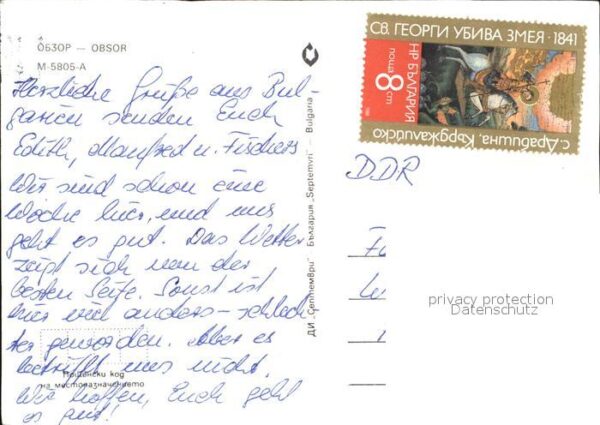 ОБЗОР — OBSOR
М-5805-А
Herzliche Grüße aus Bul-
garien senden Euch
Edith, Manfred u. Fischers
Wir sind schon eine
Woche hier, und uns
geht es gut. Das Wetter
zeigt sich von der
besten Seite. Sonst ist
hier viel anders – schlech
ter geworden. Aber es
betrifft uns nicht.
Wir hoffen, Euch geht
es gut!
Пощенски код
на местоназначението
ДИ „Септември" България „Septemvri" — Bulgaria
СВ. ГЕОРГИ УБИВА ЗМЕЯ · 1841
НР БЪЛГАРИЯ
поща 8 ст
с. Драбишна, Кърджалийско
DDR
privacy protection
Datenschutz